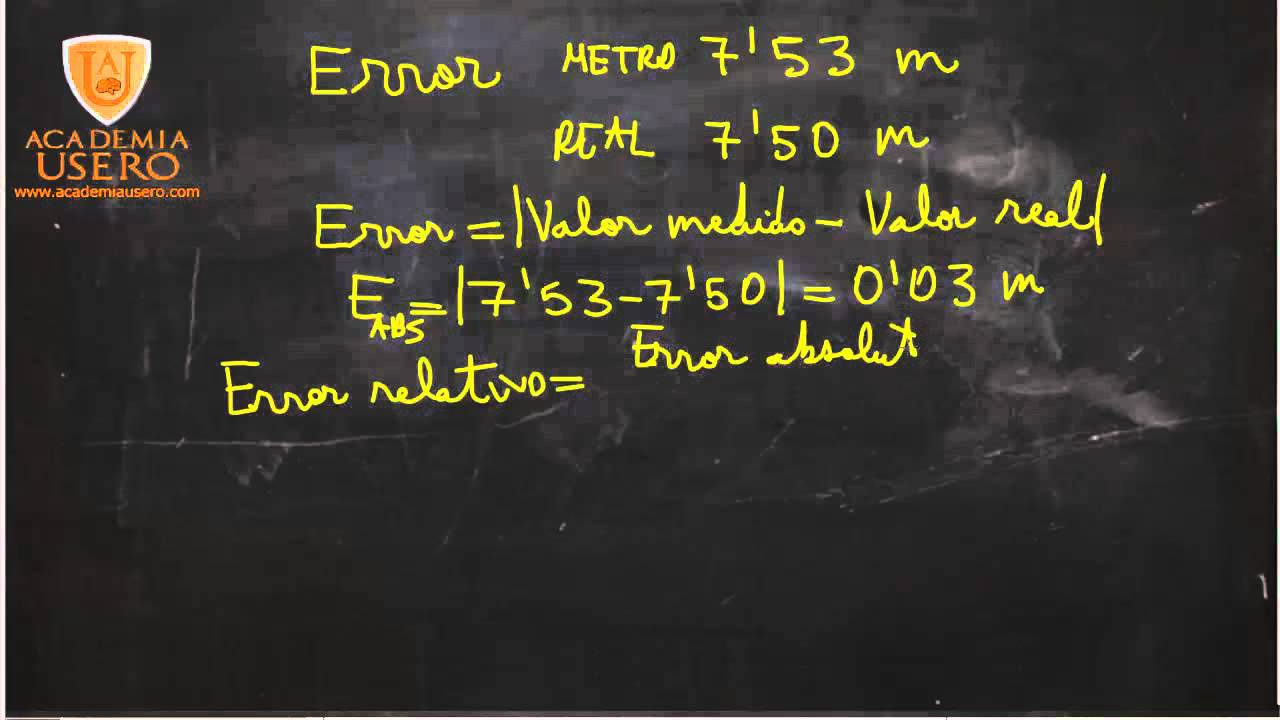 ACADEMIA
USERO
www.academiausero.com
Error METRO 7'53 m
REAL 7'50 m
Error = |Valor medido - Valor real|
E ABS = |7'53 - 7'50| = 0'03 m
Error absolut
Error relativo =